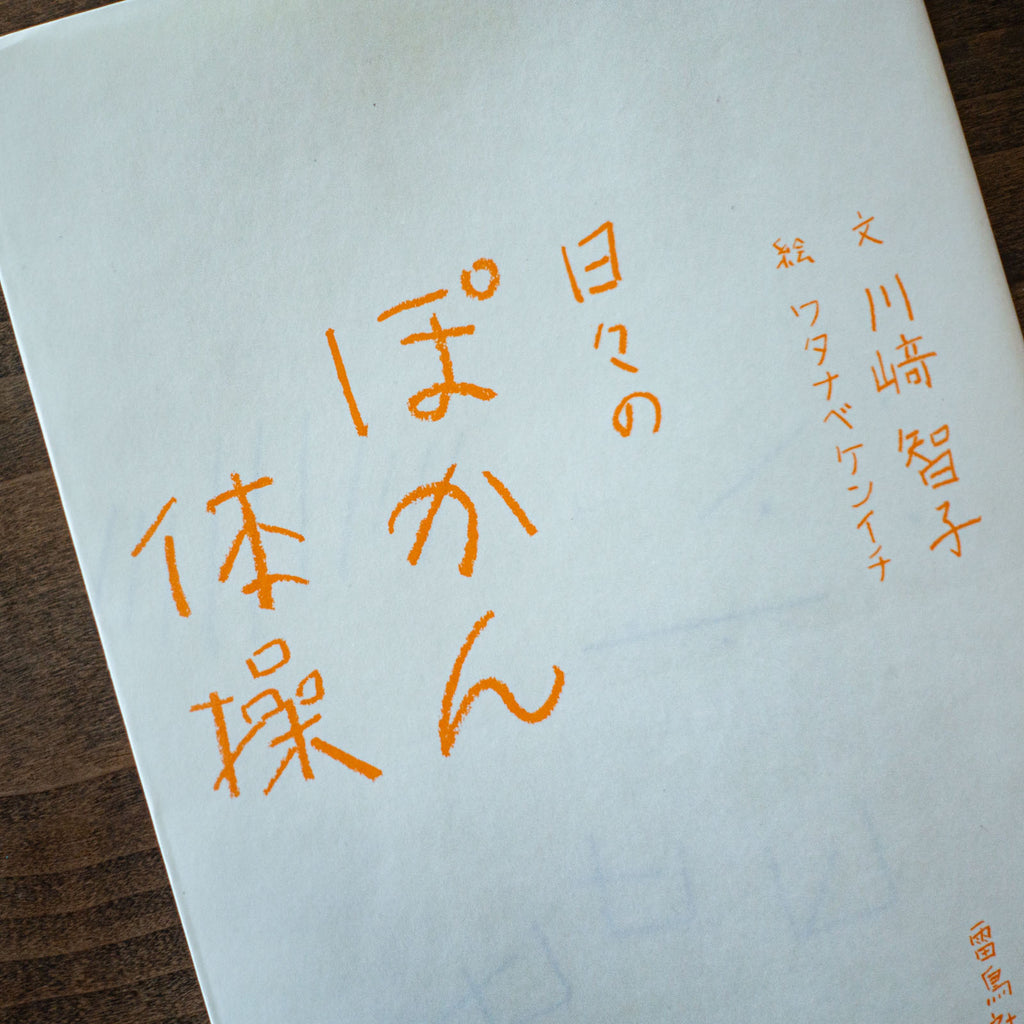 文 川﨑 智子
絵 ワタナベケンイチ
日々の
ぽかん
体操
雷鳥社